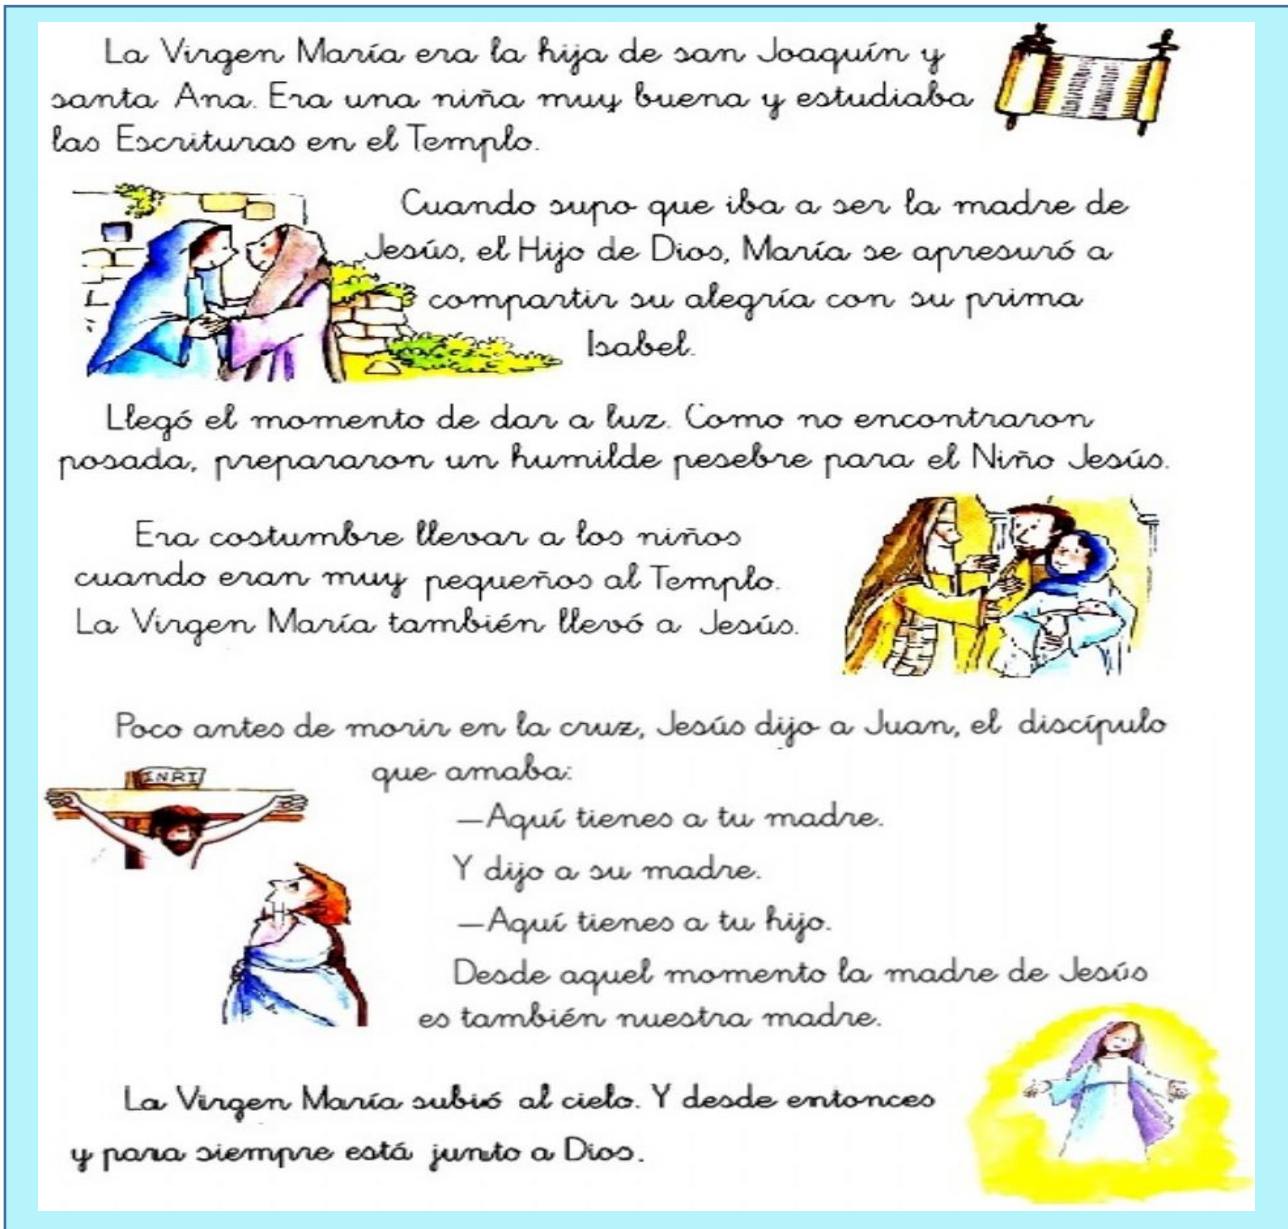 La Virgen María era la hija de san Joaquín y
santa Ana. Era una niña muy buena y estudiaba
las Escrituras en el Templo.
Cuando supo que iba a ser la madre de
Jesús, el Hijo de Dios, María se apresuró a
compartir su alegría con su prima
Isabel.
Llegó el momento de dar a luz. Como no encontraron
posada, prepararon un humilde pesebre para el Niño Jesús.
Era costumbre llevar a los niños
cuando eran muy pequeños al Templo.
La Virgen María también llevó a Jesús.
Poco antes de morir en la cruz, Jesús dijo a Juan, el discípulo
que amaba:
INRI
—Aquí tienes a tu madre.
Y dijo a su madre.
—Aquí tienes a tu hijo.
Desde aquel momento la madre de Jesús
es también nuestra madre.
La Virgen María subió al cielo. Y desde entonces
y para siempre está junto a Dios.